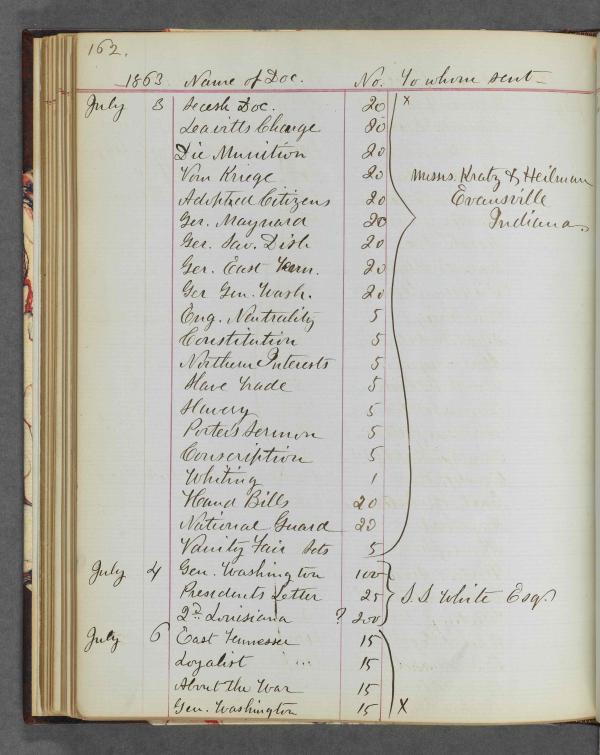 162.
1863 Name of Doc. No. To whom sent
July 3 Secesh Doc. 20 x
Leavitts Change 80
Die Munition 20
Vom Kriege 20 Messrs. Kratz & Heilman
Adopted Citizens 20 Evansville
Ger. Maynard 20 Indiana
Ger. Sav. Dish 20
Ger. East Tenn. 20
Ger Gen. Wash. 20
Eng. Neutrality 5
Constitution 5
Northern Interests 5
Slave Trade 5
Slavery 5
Porters Sermon 5
Conscription 5
Whiting 1
Hand Bills 20
National Guard 20
Vanity Fair Sets 5
July 4 Gen. Washington 100
Presidents Letter 25 S S White Esq.
2d. Louisiana ? 200
July 6 East Tennessee 15
Loyalist " 15
About the War 15
Gen. Washington 15 X